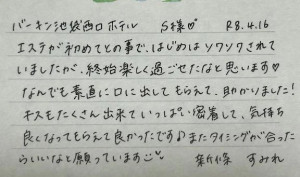 バーキン池袋西口 ホテル S様♡ R8.4.16
エステが初めてとの事で、はじめはソワソワされて
いましたが、終始楽しく過ごせたなと思います♡
なんでも素直に口に出してもらえて、助かりました!
キスもたくさん出来ていっぱい密着して、気持ち
良くなってもらえて良かったです♪またタイミングが合った
らいいなと願っています
新條 すみれ